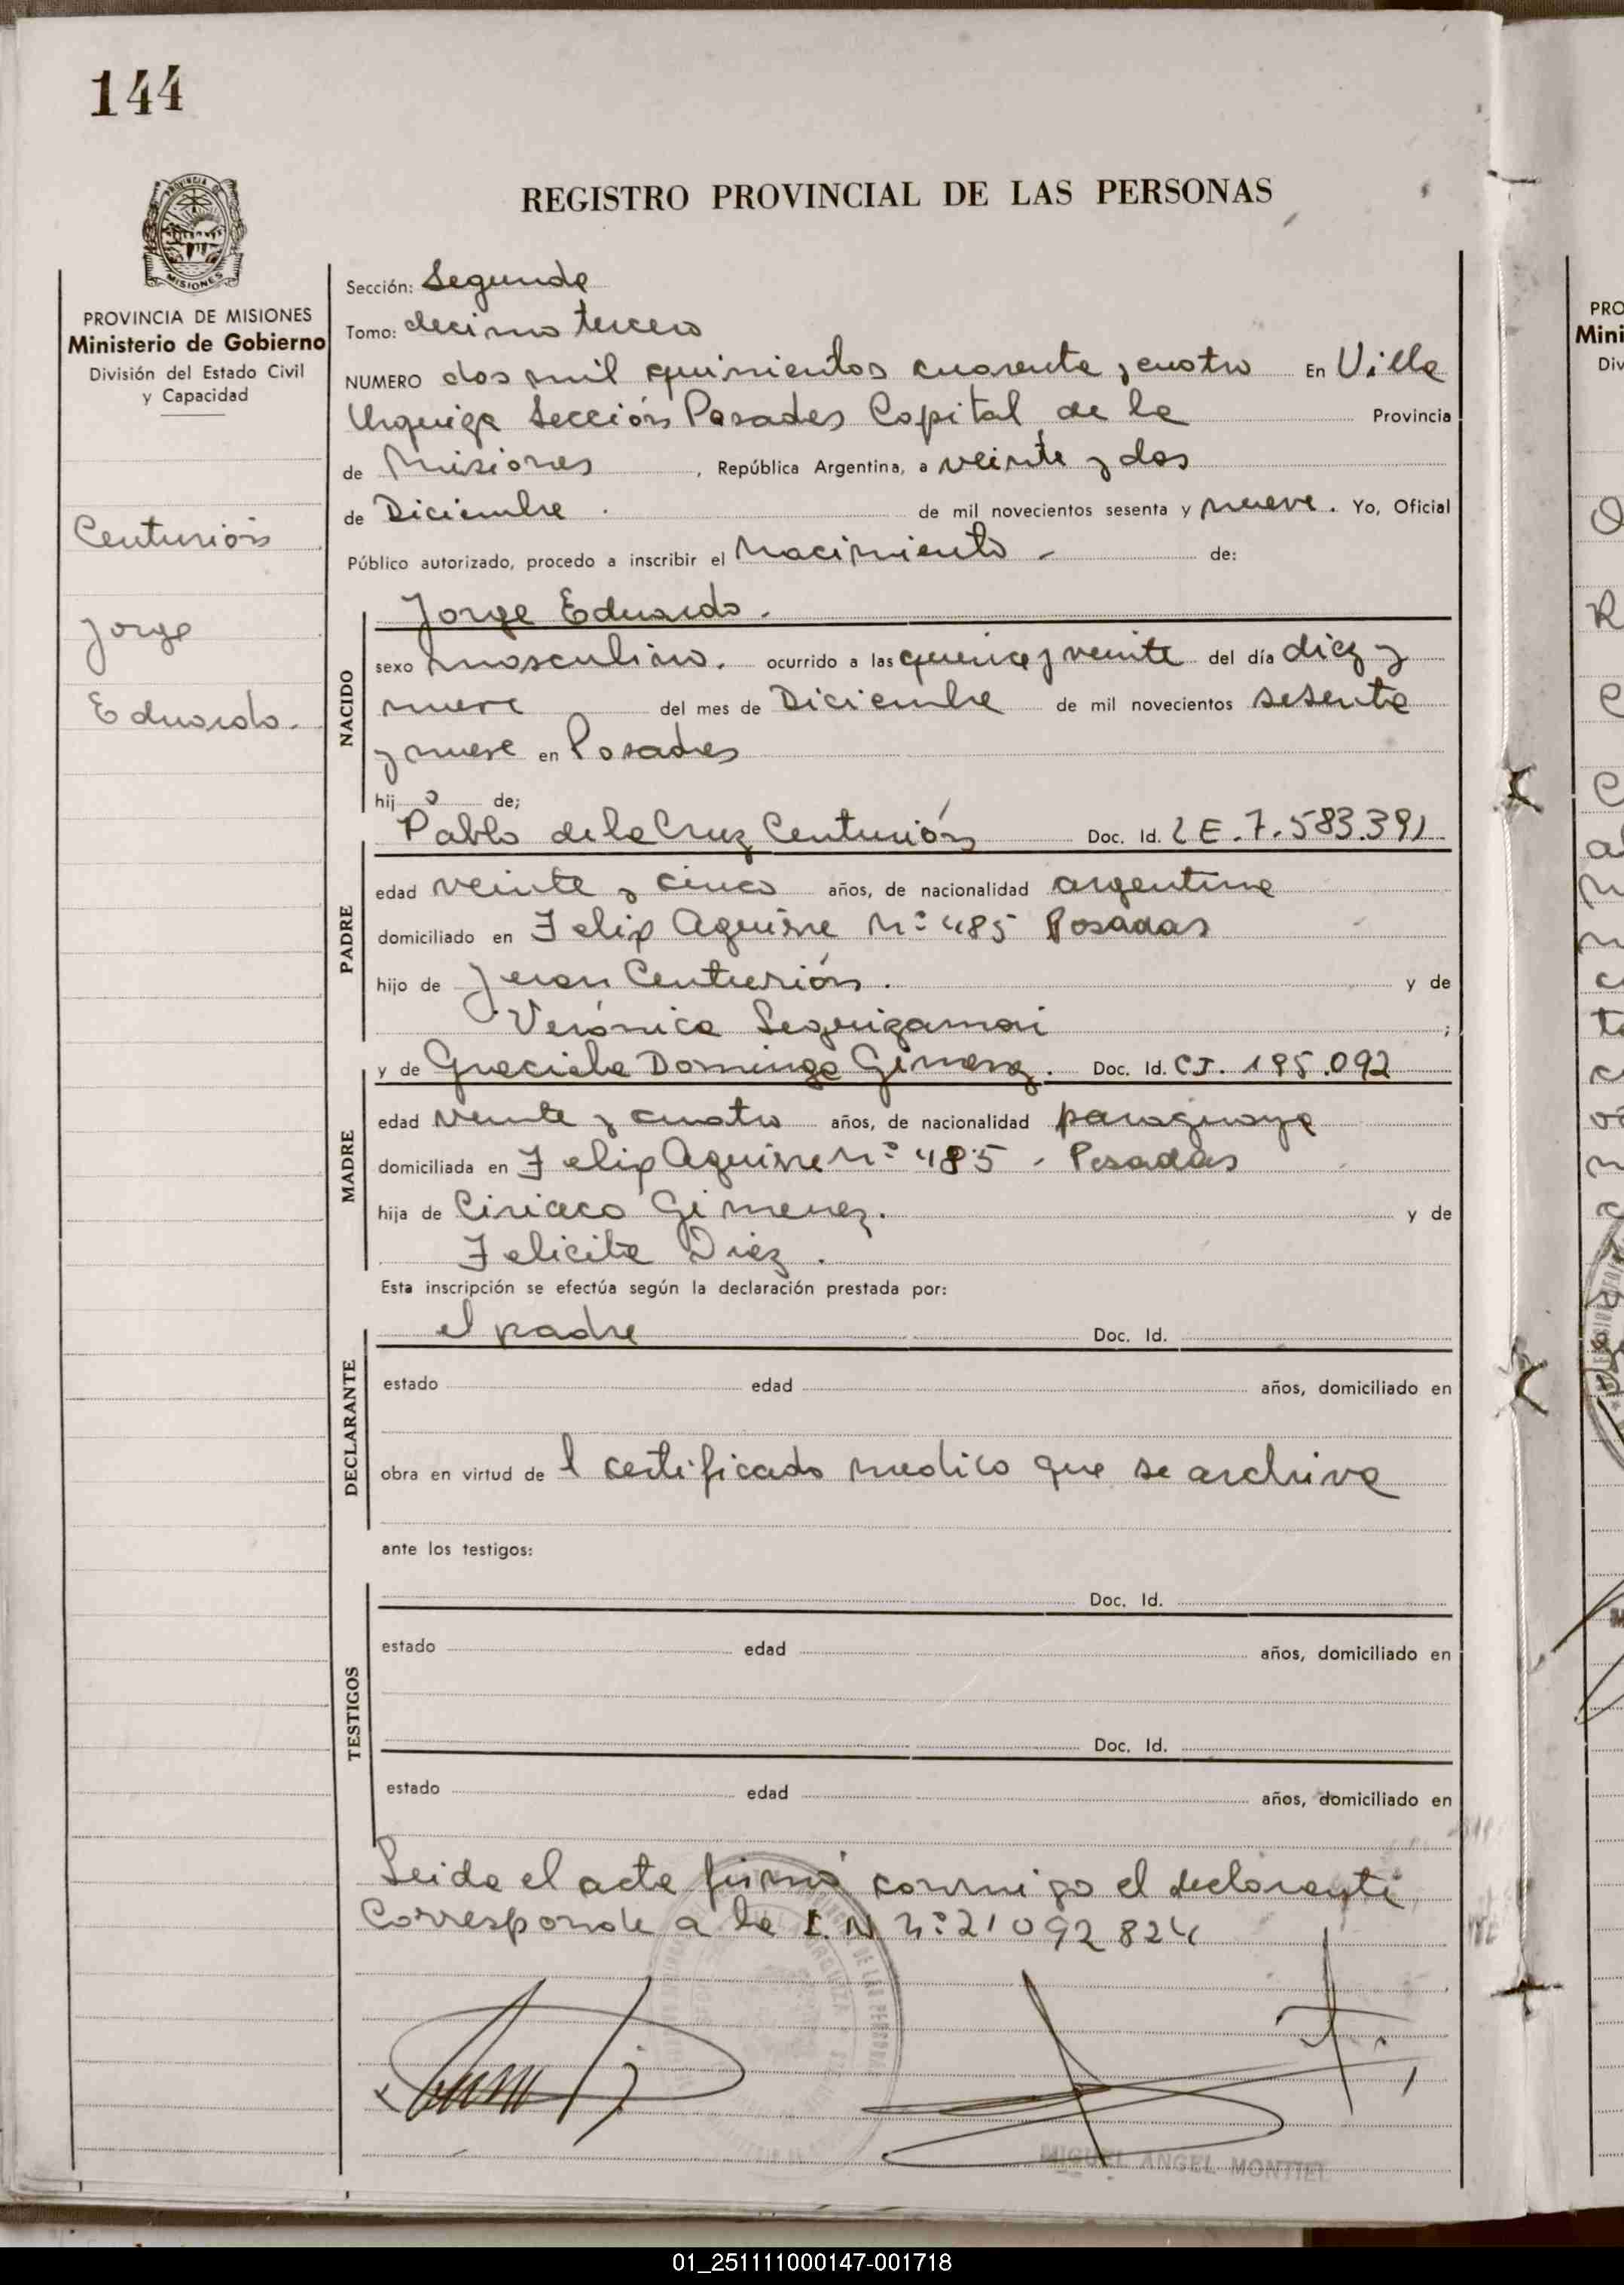 144
REGISTRO PROVINCIAL DE LAS PERSONAS
MISIONES
PROVINCIA DE MISIONES
Ministerio de Gobierno
División del Estado Civil
y Capacidad
Centurión
Jorge
Eduardo.
Sección: Segunda
Tomo: decimo tercero
NUMERO dos mil quinientos cuarenta y cuatro En Villa
Urquiza Sección Posadas Capital de la Provincia
de Misiones , República Argentina, a veinte y dos
de Diciembre . de mil novecientos sesenta y nueve. Yo, Oficial
Público autorizado, procedo a inscribir el nacimiento - de:
Jorge Eduardo.
NACIDO
sexo masculino. ocurrido a las quince y veinte del día diez y
nueve del mes de Diciembre de mil novecientos sesenta
y nueve en Posadas
hij o de;
Pablo de la Cruz Centurión Doc. Id. L E. 7.583.391
PADRE
edad veinte y cinco años, de nacionalidad argentina
domiciliado en Felix Aguirre Nº 485 Posadas
hijo de Juan Centurión. y de
Verónica ;
y de Graciela Dominga Gimenez. Doc. Id. CI. 195.092
MADRE
edad veinte y cuatro años, de nacionalidad paraguaya
domiciliada en Felix Aguirre Nº 485 - Posadas
hija de Ciriaco Gimenez. y de
Felicita Diez.
Esta inscripción se efectúa según la declaración prestada por:
el padre Doc. Id.
DECLARANTE
estado edad años, domiciliado en
obra en virtud de l certificado medico que se archiva
ante los testigos:
Doc. Id.
TESTIGOS
estado edad años, domiciliado en
Doc. Id.
estado edad años, domiciliado en
Leida el acta firmó conmigo el declarante
Corresponde a la L.N Nº 21092824
MIGUEL ANGEL MONTIEL
PRO
Mini
Div
01_251111000147-001718